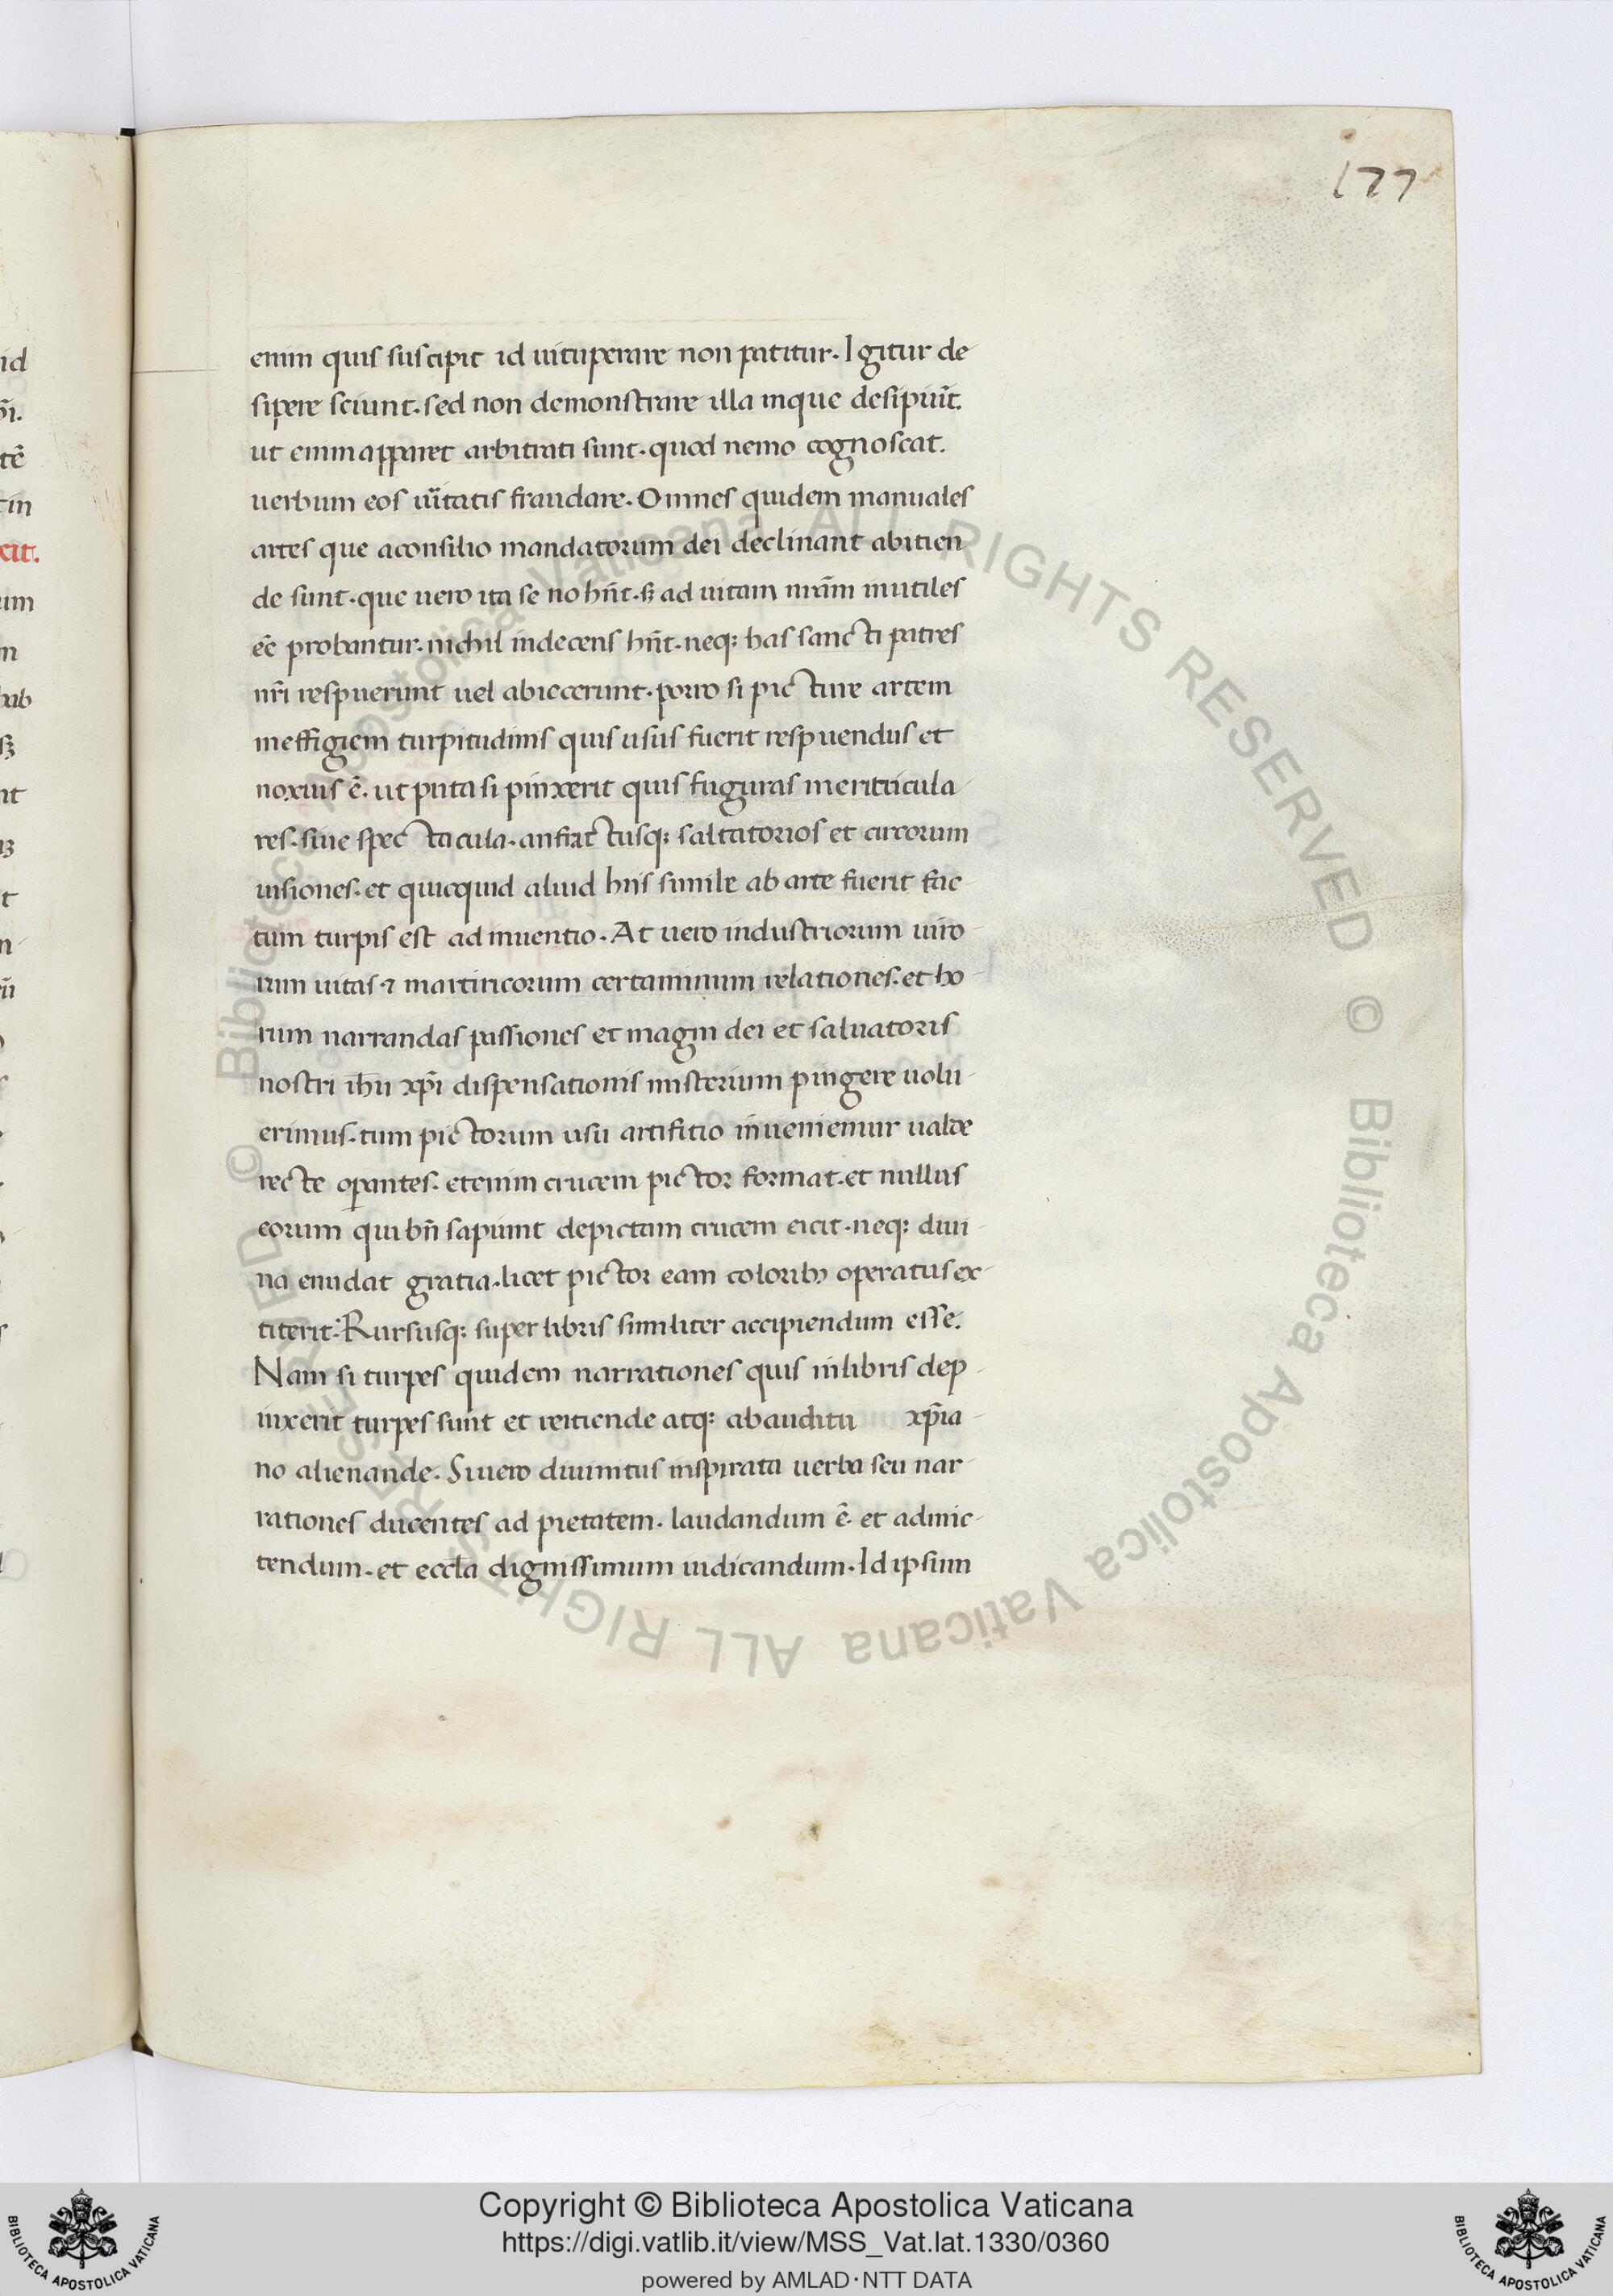 177
enim quis suscipit id uituperare non patitur. Igitur de
sipere sciunt. sed non demonstrare illa inque desipiūt.
ut enim apparet arbitrati sunt. quod nemo cognoscat.
uerbum eos uītatis fraudare. Omnes quidem manuales
artes que aconsilio mandatorum dei declinant abitien
de sunt. que uero ita se no hn̄t. sꝫ ad uitam nrām inutiles
eē probantur. nichil indecens hn̄t. neqꝫ has sancti patres
nr̄i respuerunt uel abiecerunt. porro si picture artem
ineffigiem turpitudinis quis usus fuerit respuendus et
noxius ē. ut puta si pinxerit quis fuguras meritricula
res. siue spectacula. anfractusqꝫ saltatorios et circorum
uisiones. et quicquid aliud hiis simile ab arte fuerit fac
tum turpis est adinuentio. At uero industriorum uiro
rum uitas ⁊ martiricorum certaminum relationes. et ho
rum narrandas passiones et magni dei et saluatoris
nostri ihū xp̄i dispensationis misterium pingere uolu
erimus. tum pictorum usu artifitio inueniemur ualde
recte oꝑantes. etenim crucem pictor format. et nullus
eorum qui bn̄ sapiunt depictam crucem eicit. neqꝫ diui
na euidat gratia. licet pictor eam coloribꝫ operatus ex
titerit. Rursusqꝫ super libris similiter accipiendum esse.
Nam si turpes quidem narrationes quis inlibris dep
inxerit turpes sunt et reitiende atqꝫ abauditu xp̄ia
no alienande. Siuero diuinitus inspirata uerba seu nar
rationes ducentes ad pietatem. laudandum ē. et admic
tendum. et eccl̄a dignissimum iudicandum. Id ipsum
id
tē
in
um
bab
© Biblioteca Apostolica Vaticana ALL RIGHTS RESERVED © Biblioteca Apostolica Vaticana ALL RIGHTS RESERVED
BIBLIOTECA APOSTOLICA VATICANA
Copyright © Biblioteca Apostolica Vaticana
https://digi.vatlib.it/view/MSS_Vat.lat.1330/0360
powered by AMLAD·NTT DATA
BIBLIOTECA APOSTOLICA VATICANA